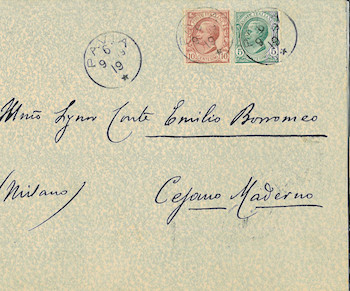 PAVIA
6
9 19
10 10
5 5
Illmo Signor Conte Emilio Borromeo
(Milano) Cesano Maderno